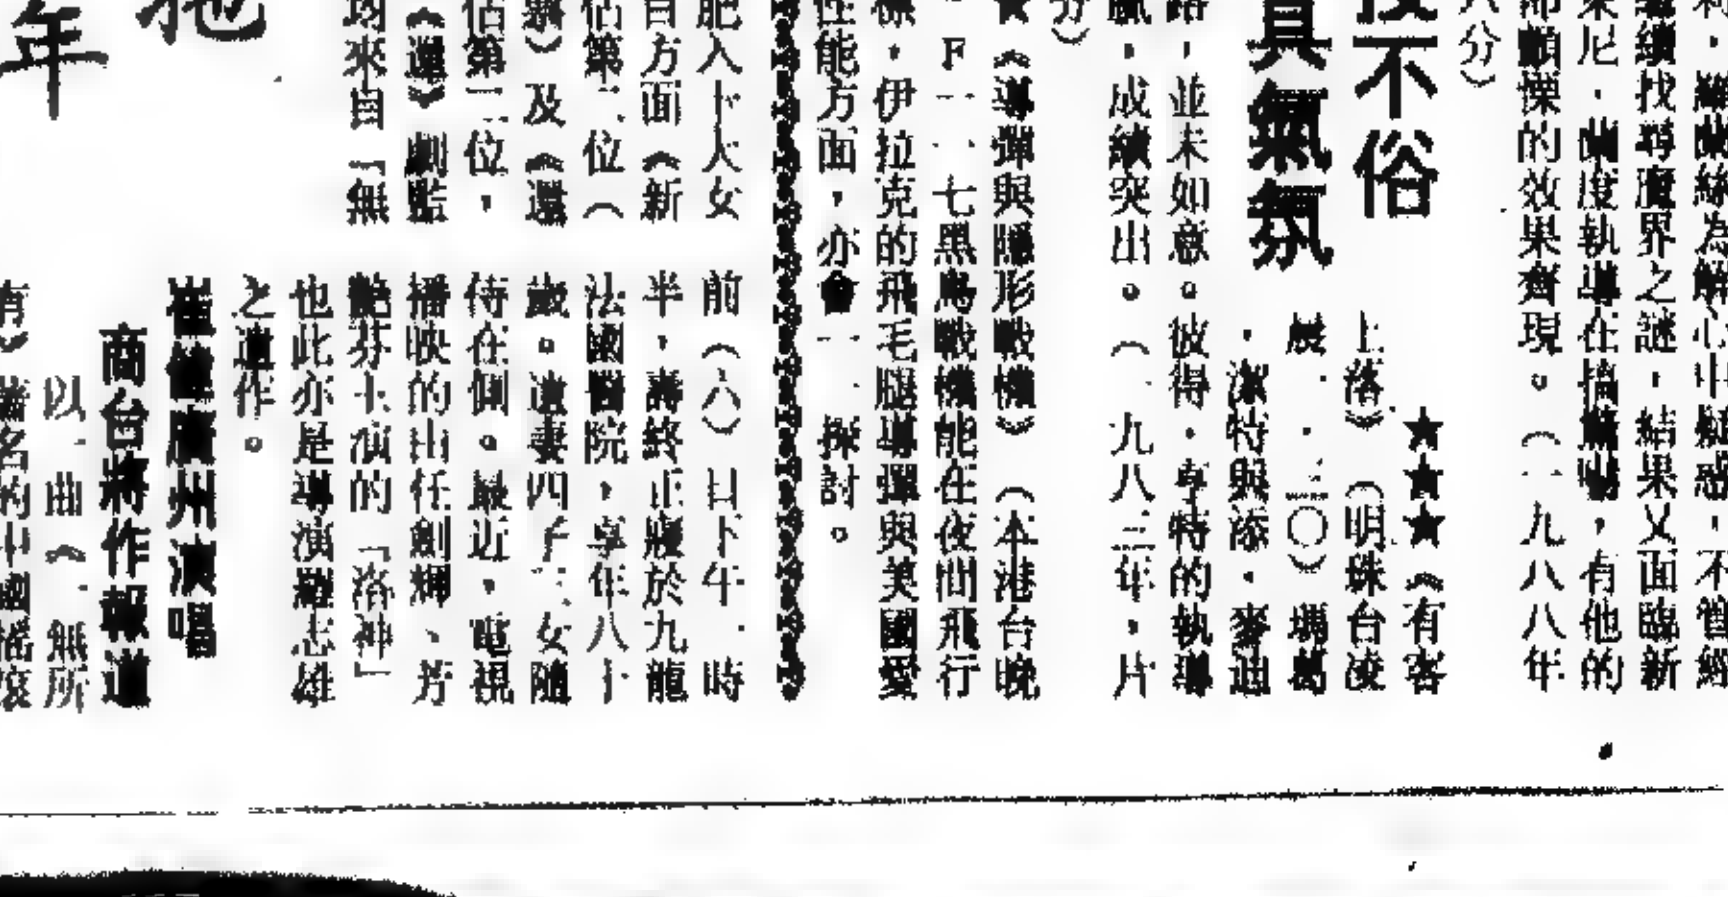 利，雖
繼續找尋魔界之謎，結果又面臨新
來尼，執導在搞，有他的
沛顫慄的效果齊現。（一九八八年
八分）
不俗
真氣氛
★★★《有客
上落》（明珠台凌
晨一‧三〇）瑪葛
‧潔特與添‧麥迪
路，並未如意。彼得‧亨特的執導
膩，成績突出。（一九八三年，片
分）
★《導彈與隱形戰機》（本港台晚
‧F一一七黑鳥戰機能在夜間飛行
標，伊拉克的飛毛腿導彈與美國愛
性能方面，亦會一一探討。
肥入十大女
目方面《新
佔第二位（
》及《還
佔第三位，
《還》劇監
均來自「無
前（八）日下午一時
半，壽終正寢於九龍
法國醫院，享年八十
歲。遺妻四子二女隨
侍在側。最近，電視
播映的由任劍輝、芳
艷芬主演的「洛神」
也此亦是導演羅志雄
之遺作。
崔健廣州演唱
商台將作報道
以一曲《一無所
有》著名的中國搖滾
年